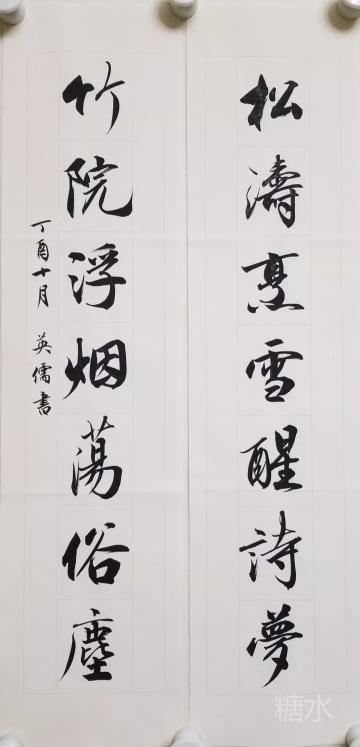 松濤烹雪醒詩夢
竹院浮烟蕩俗塵
丁酉十月 英儒書
糖水